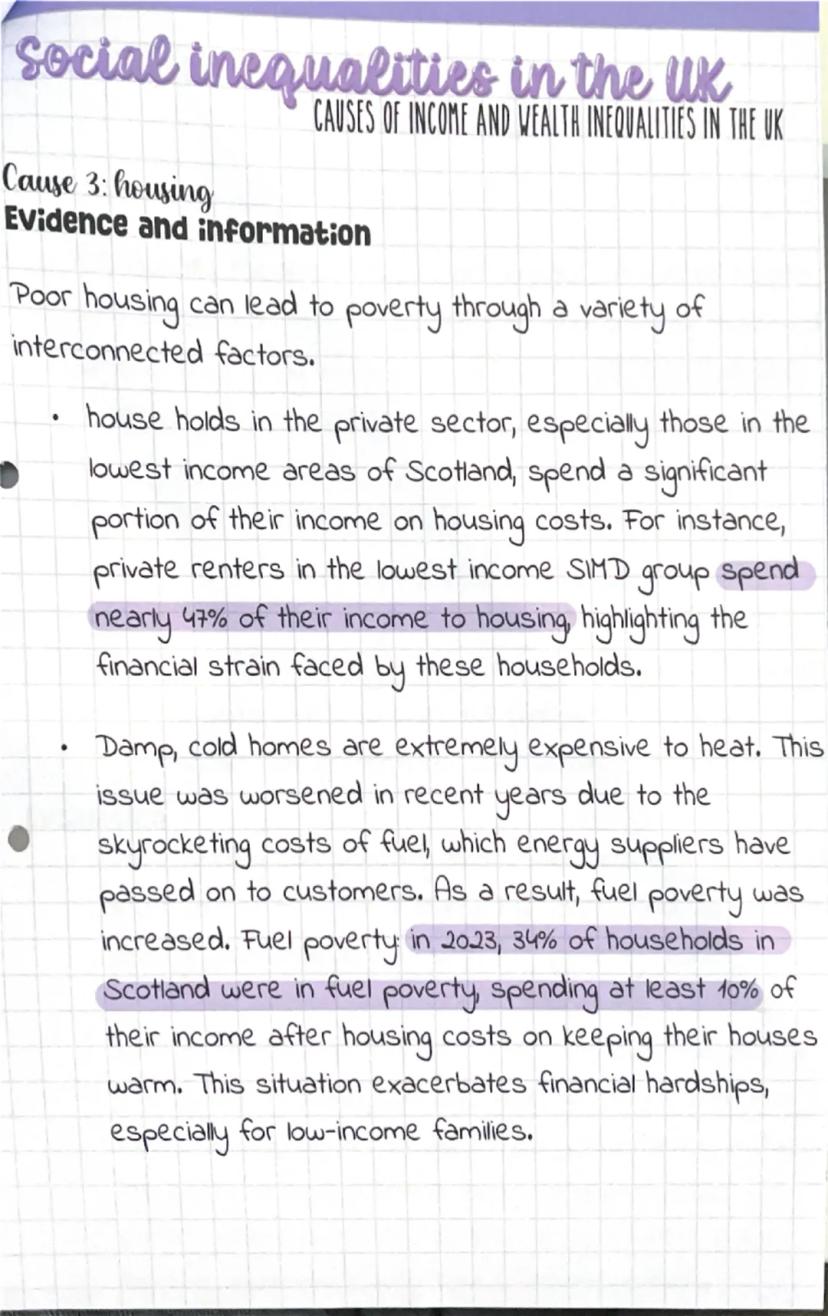 Social inequalities in the UK
CAUSES OF INCOME AND WEALTH INEQUALITIES IN THE UK
Cause 3: housing
Evidence and information
Poor housing can lead to poverty through a variety of
interconnected factors.
• house holds in the private sector, especially those in the
lowest income areas of Scotland, spend a significant
portion of their income on housing costs. For instance,
private renters in the lowest income SIMD group spend
nearly 47% of their income to housing, highlighting the
financial strain faced by these households.
• Damp, cold homes are extremely expensive to heat. This
issue was worsened in recent years due to the
skyrocketing costs of fuel, which energy suppliers have
passed on to customers. As a result, fuel poverty was
increased. Fuel poverty in 2023, 34% of households in
Scotland were in fuel poverty, spending at least 10% of
their income after housing costs on keeping their houses
warm. This situation exacerbates financial hardships,
especially for low-income families.